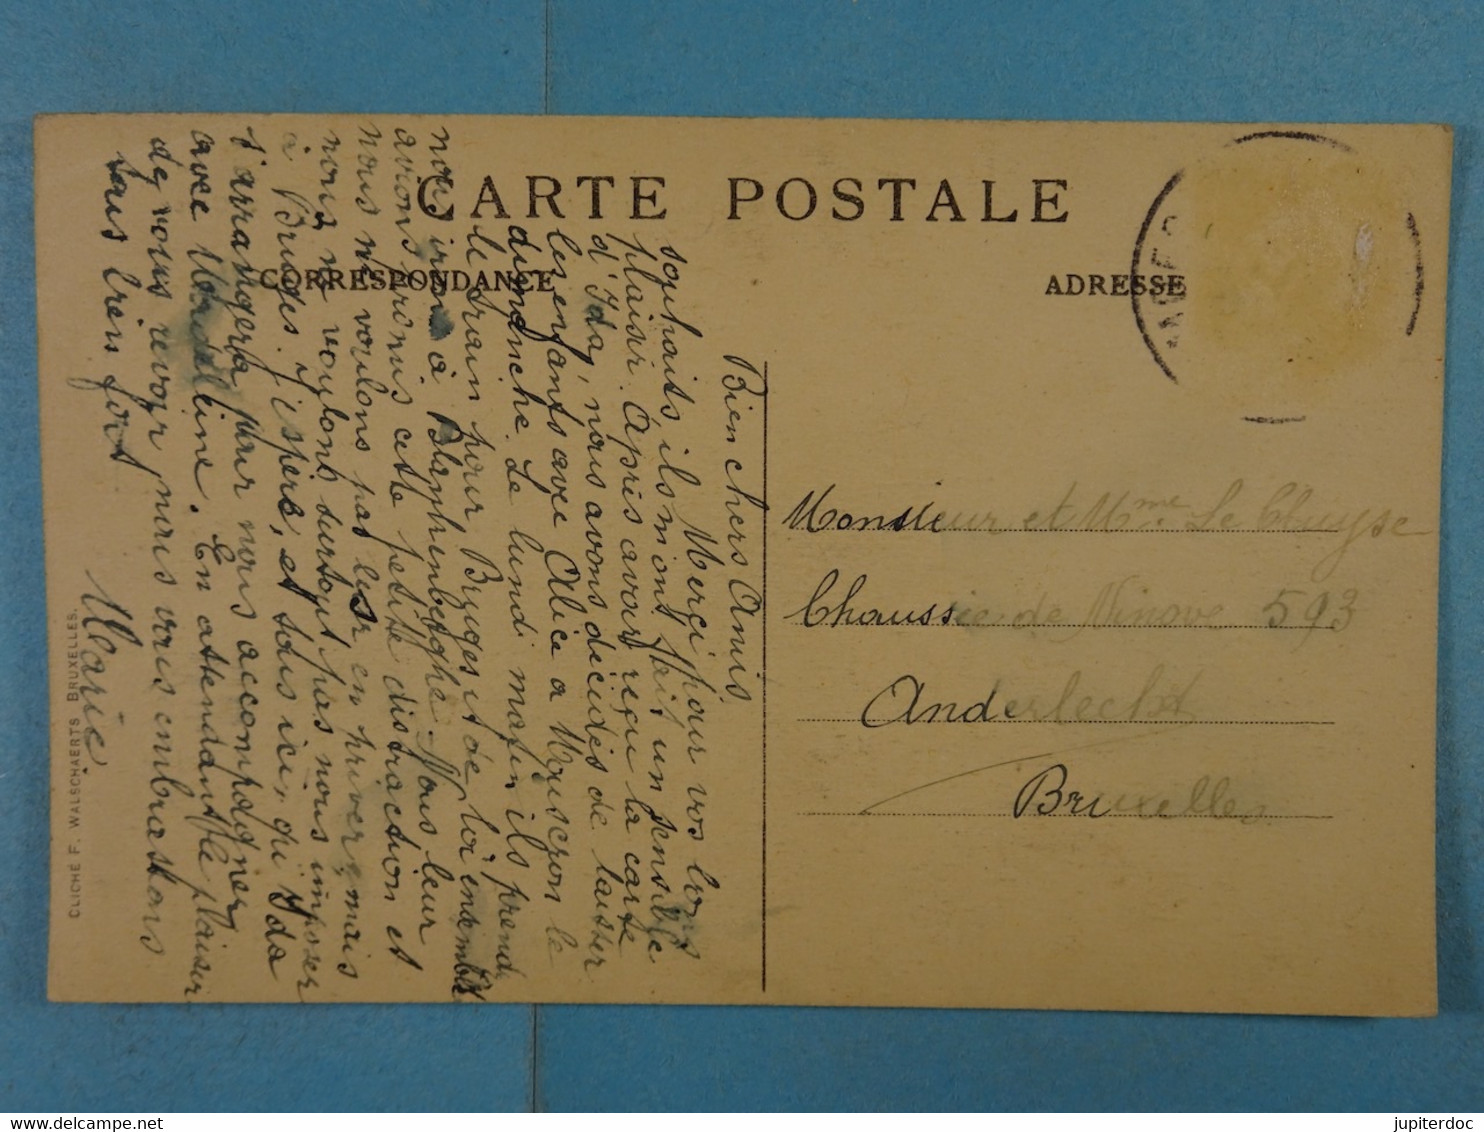 CARTE POSTALE
CORRESPONDANCE
ADRESSE
Bien chers Amis,
Merci pour vos bons
souhaits, ils m'ont fait un sensible
plaisir. Après avoir reçu la carte
d'Ida, nous avons décidés de laisser
les enfants avec Alice a Mouscron le
dimanche. Le lundi matin ils prend
le train pour Bruges et de là ensemble
nous irons à Blankenberghe. Nous leur
avions promis cette petite distraction et
nous ne voulons pas les en priver, mais
nous ne voulons surtout pas nous imposer
à Bruges. J'espère, et tous ici, qu'Ida
s'arrangera pour nous accompagner
avec Marcelline. En attendant le plaisir
de vous revoir nous vous embrassons
tous bien fort
Marie
Monsieur et Mme Le Cluyse
Chaussée de Ninove 593
Anderlecht
Bruxelles
CLICHÉ F. WALSCHAERTS BRUXELLES.
delcampe.net
jupiterdoc